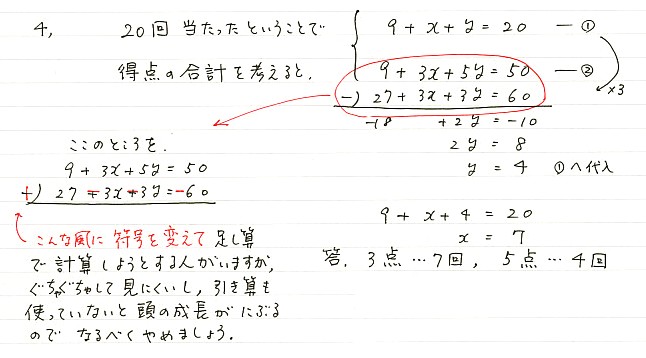 4, 20回 当たったということで
得点の合計を考えると、
9 + x + y = 20 ― ①
9 + 3x + 5y = 50 ― ②
×3
-) 27 + 3x + 3y = 60
-18 + 2y = -10
2y = 8
y = 4 ①へ代入
9 + x + 4 = 20
x = 7
答. 3点…7回, 5点…4回
ここのところを、
9 + 3x + 5y = 50
+) 27 - 3x - 3y = -60
こんな風に 符号を変えて 足し算
で計算しようとする人がいますが、
ぐちゃぐちゃして見にくいし、引き算も
使っていないと頭の成長がにぶる
ので なるべくやめましょう.